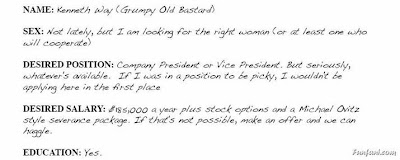 NAME: Kenneth Way (Grumpy Old Bastard)
SEX: Not lately, but I am looking for the right woman (or at least one who
will cooperate)
DESIRED POSITION: Company President or Vice President. But seriously,
whatever's available. If I was in a position to be picky, I wouldn't be
applying here in the first place
DESIRED SALARY: $185,000 a year plus stock options and a Michael Ovitz
style severance package. If that's not possible, make an offer and we can
haggle.
EDUCATION: Yes.
Funfani.com